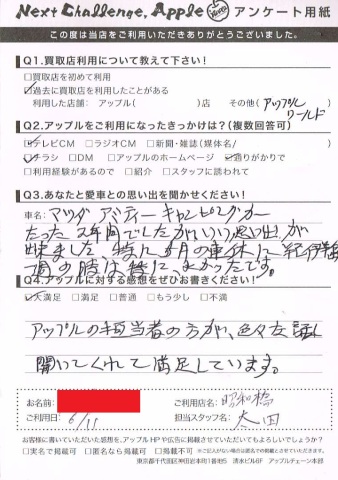 Next Challenge. Apple アンケート用紙
この度は当店をご利用いただきありがとうございました。
Q1.買取店利用について教えて下さい!
□買取店を初めて利用
☑過去に買取店を利用したことがある
利用した店舗: アップル( )店 その他(アップルワールド)
Q2.アップルをご利用になったきっかけは?(複数回答可)
☑テレビCM □ラジオCM □新聞・雑誌(媒体名: )
☑チラシ □DM □アップルのホームページ ☑通りがかりで
□利用経験があるので □紹介 □スタッフに誘われて
Q3.あなたと愛車との思い出を聞かせください!
車名: マツダ アビティー キャンピングカー
たった2年間でしたがいい思い出が
出来ました、特に5月の連休に紀伊半島
一周の時は特に、よかったです。
Q4.アップルに対する感想をぜひお書きください!
☑大満足 □満足 □普通 □もう少し □不満
アップルの担当者の方が、色々な話し
聞いてくれて満足しています。
お名前: ご利用店名: 昭和橋
ご利用日: 6/11 担当スタッフ名: 太田
お客様に書いていただいた感想を、アップルHPや広告に掲載させていただいてもよろしいでしょうか?
□実名で掲載可 □匿名なら掲載可 □掲載不可 ※ご記入がない場合は匿名での掲載とさせていただきます。
東京都千代田区神田岩本町1番地5 清水ビル6F アップルチェーン本部